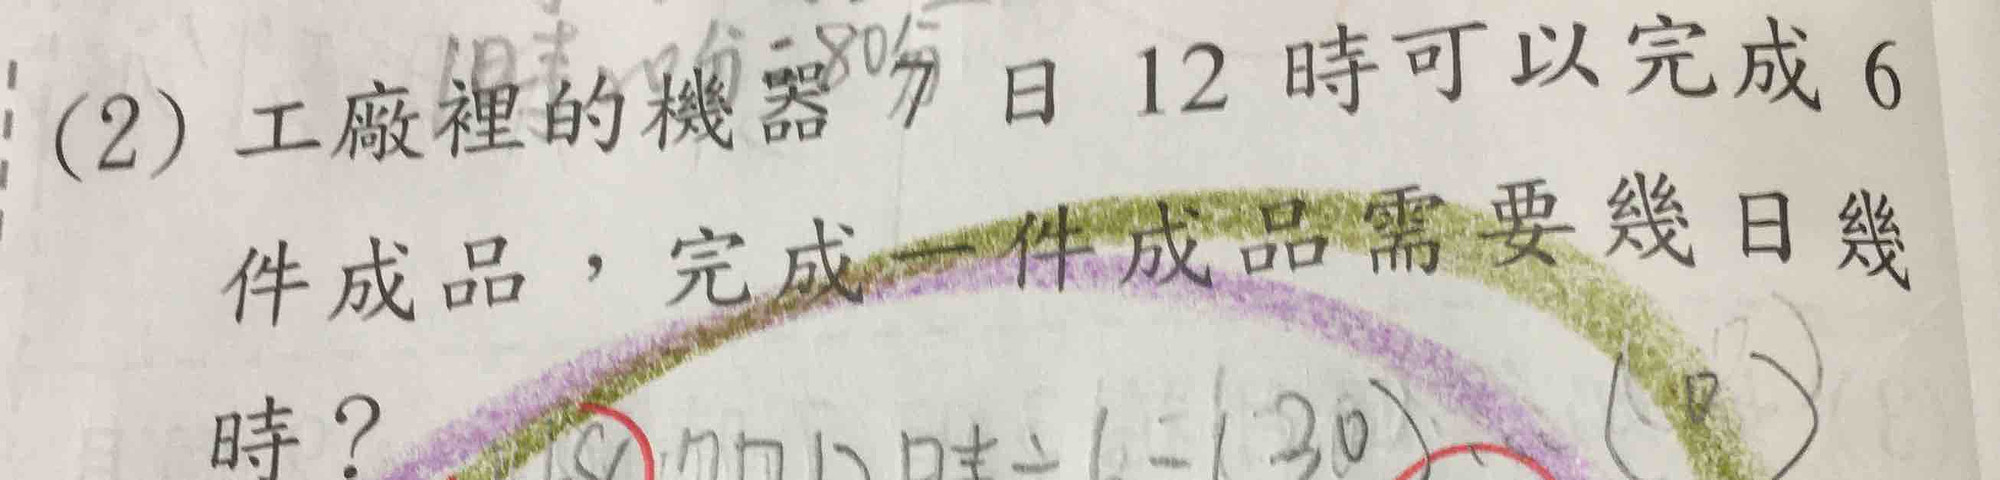 =80分
(2) 工廠裡的機器 7 日 12 時可以完成 6
件成品，完成一件成品需要幾日幾
時？
(0)
時÷6=(30)